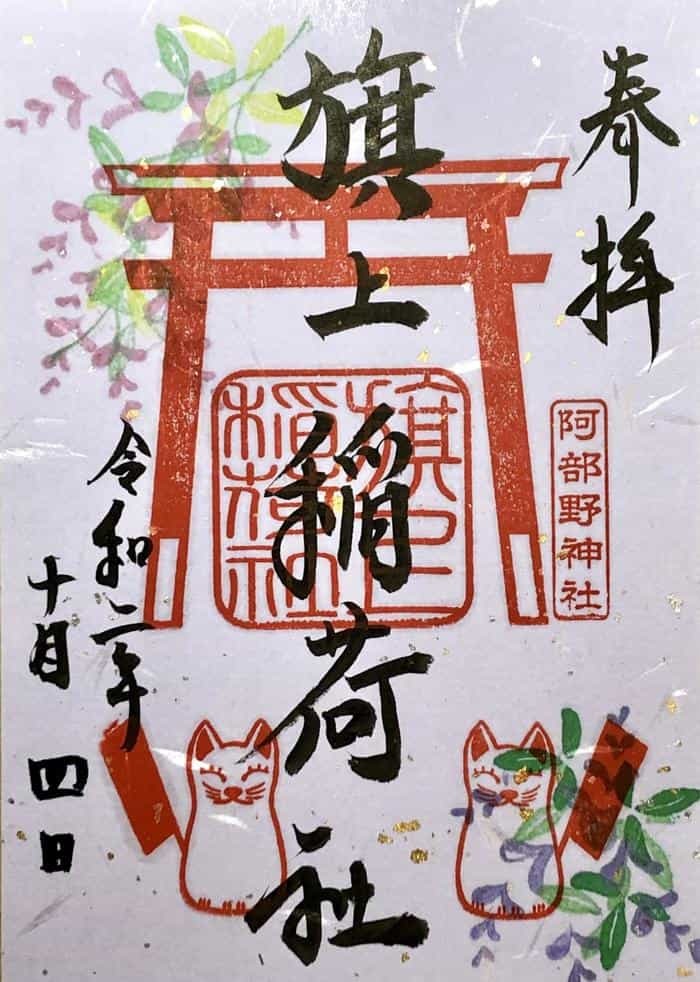 奉拝
阿部野神社
旗上稲荷社
旗上
稲荷社
令和二年
十月四日